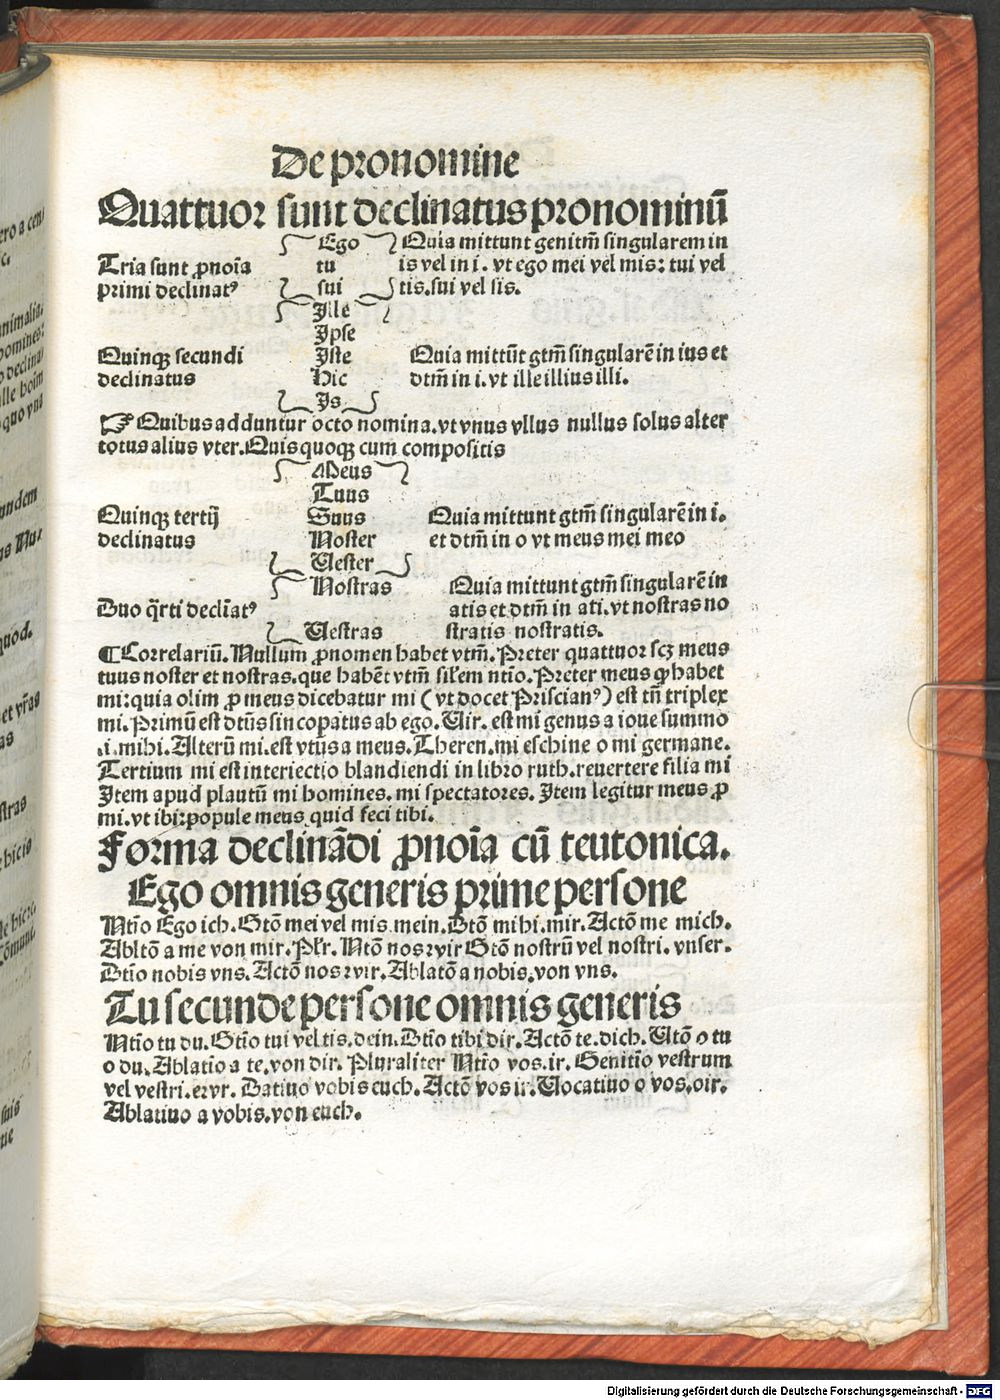 De pronomine
Quattuor sunt declinatus pronominū
Tria sunt ꝓnoīa primi declinatꝰ
Ego
tu
sui
Quia mittunt genitm̄ singularem in
is vel in i. vt ego mei vel mis: tui vel
tis. sui vel sis.
Quinqꝫ secundi
declinatus
Ille
Ipse
Iste
Hic
Is
Quia mittūt gtm̄ singularē in ius et
dtm̄ in i. vt ille illius illi.
☞ Quibus adduntur octo nomina. vt vnus vllus nullus solus alter
totus alius vter. Quis quoqꝫ cum compositis
Quinqꝫ tertij
declinatus
Meus
Tuus
Suus
Noster
Uester
Quia mittunt gtm̄ singularē in i.
et dtm̄ in o vt meus mei meo
Duo q̄rti declīatꝰ
Nostras
Uestras
Quia mittunt gtm̄ singularē in
atis et dtm̄ in ati. vt nostras no
stratis nostratis.
¶ Correlariū. Nullum ꝓnomen habet vtm̄. Preter quattuor scꝫ meus
tuus noster et nostras. que habēt vtm̄ sil̄em ntīo. Preter meus ꝙ habet
mi: quia olim ꝓ meus dicebatur mi (vt docet Priscianꝰ) est tn̄ triplex
mi. Primū est dtūs sincopatus ab ego. Uir. est mi genus a ioue summo
.i. mihi. Alterū mi. est vtūs a meus. Theren. mi eschine o mi germane.
Tertium mi est interiectio blandiendi in libro ruth. reuertere filia mi
Item apud plautū mi homines. mi spectatores. Item legitur meus ꝓ
mi. vt ibi: popule meus quid feci tibi.
Forma declinādi ꝓnoīa cū teutonica.
Ego omnis generis prime persone
Ntīo Ego ich. Gtō mei vel mis mein. Dtō mihi. mir. Actō me mich.
Abltō a me von mir. Pl̄r. Ntō nos wir Gtō nostrū vel nostri. vnser.
Dtīo nobis vns. Actō nos wir. Ablatō a nobis. von vns.
Tu secunde persone omnis generis
Ntīo tu du. Gtīo tui vel tis. dein. Dtīo tibi dir. Actō te. dich. Utō o tu
o du. Ablatīo a te. von dir. Pluraliter Ntīo vos. ir. Genitīo vestrum
vel vestri. ewr. Datiuo vobis euch. Actō vos ir. Uocatiuo o vos. oir.
Ablatiuo a vobis. von euch.
Digitalisierung gefördert durch die Deutsche Forschungsgemeinschaft - DFG